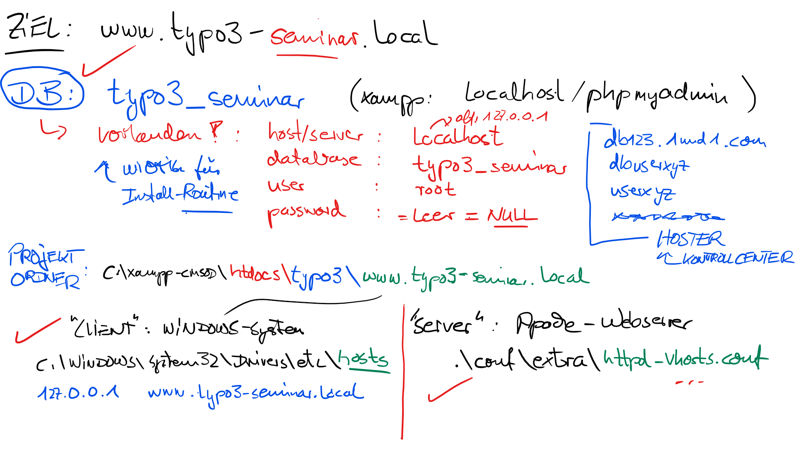 ZIEL: www.typo3-seminar.local
DB: typo3_seminar (xampp: localhost/phpmyadmin)
ggf. 127.0.0.1
vorhanden?: host/server: localhost
database: typo3_seminar
user: root
password: = leer = NULL
wichtig für
Install-Routine
db123.1und1.com
dbuserxyz
userxyz
HOSTER
KONTROLLCENTER
PROJEKT
ORDNER: C:\xampp-cmsod\htdocs\typo3\www.typo3-seminar.local
"CLIENT": WINDOWS-System
C:\WINDOWS\System32\drivers\etc\hosts
127.0.0.1 www.typo3-seminar.local
"Server": Apache-Webserver
.\conf\extra\httpd-vhosts.conf
...